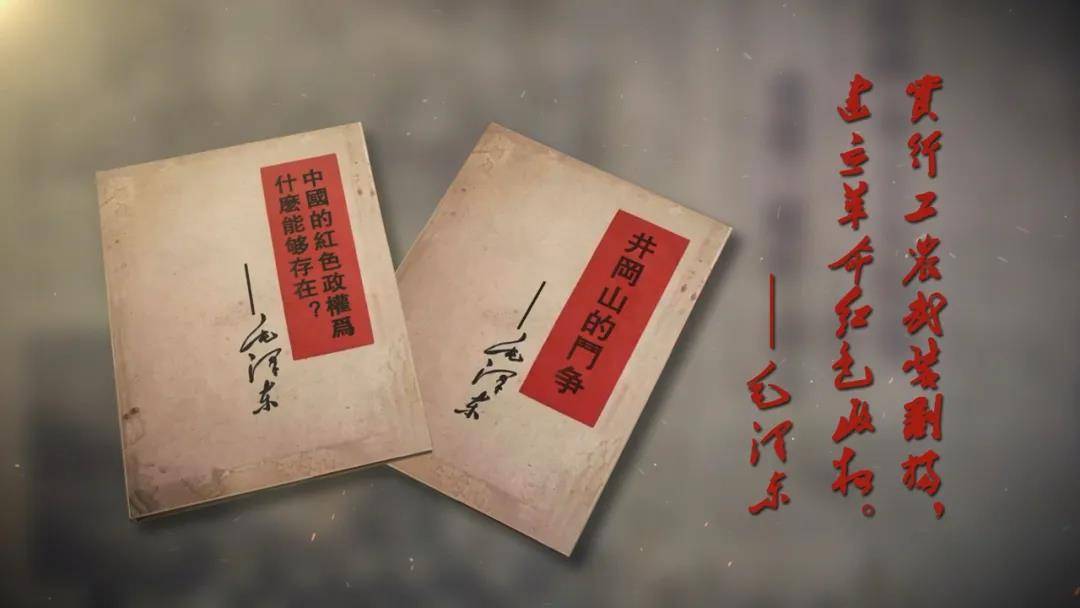 中國的紅色政權爲
什麽能够存在？
——毛泽东
井岡山的鬥争
——毛泽东
實行工農武装割据，
建立革命红色政权。
——毛泽东